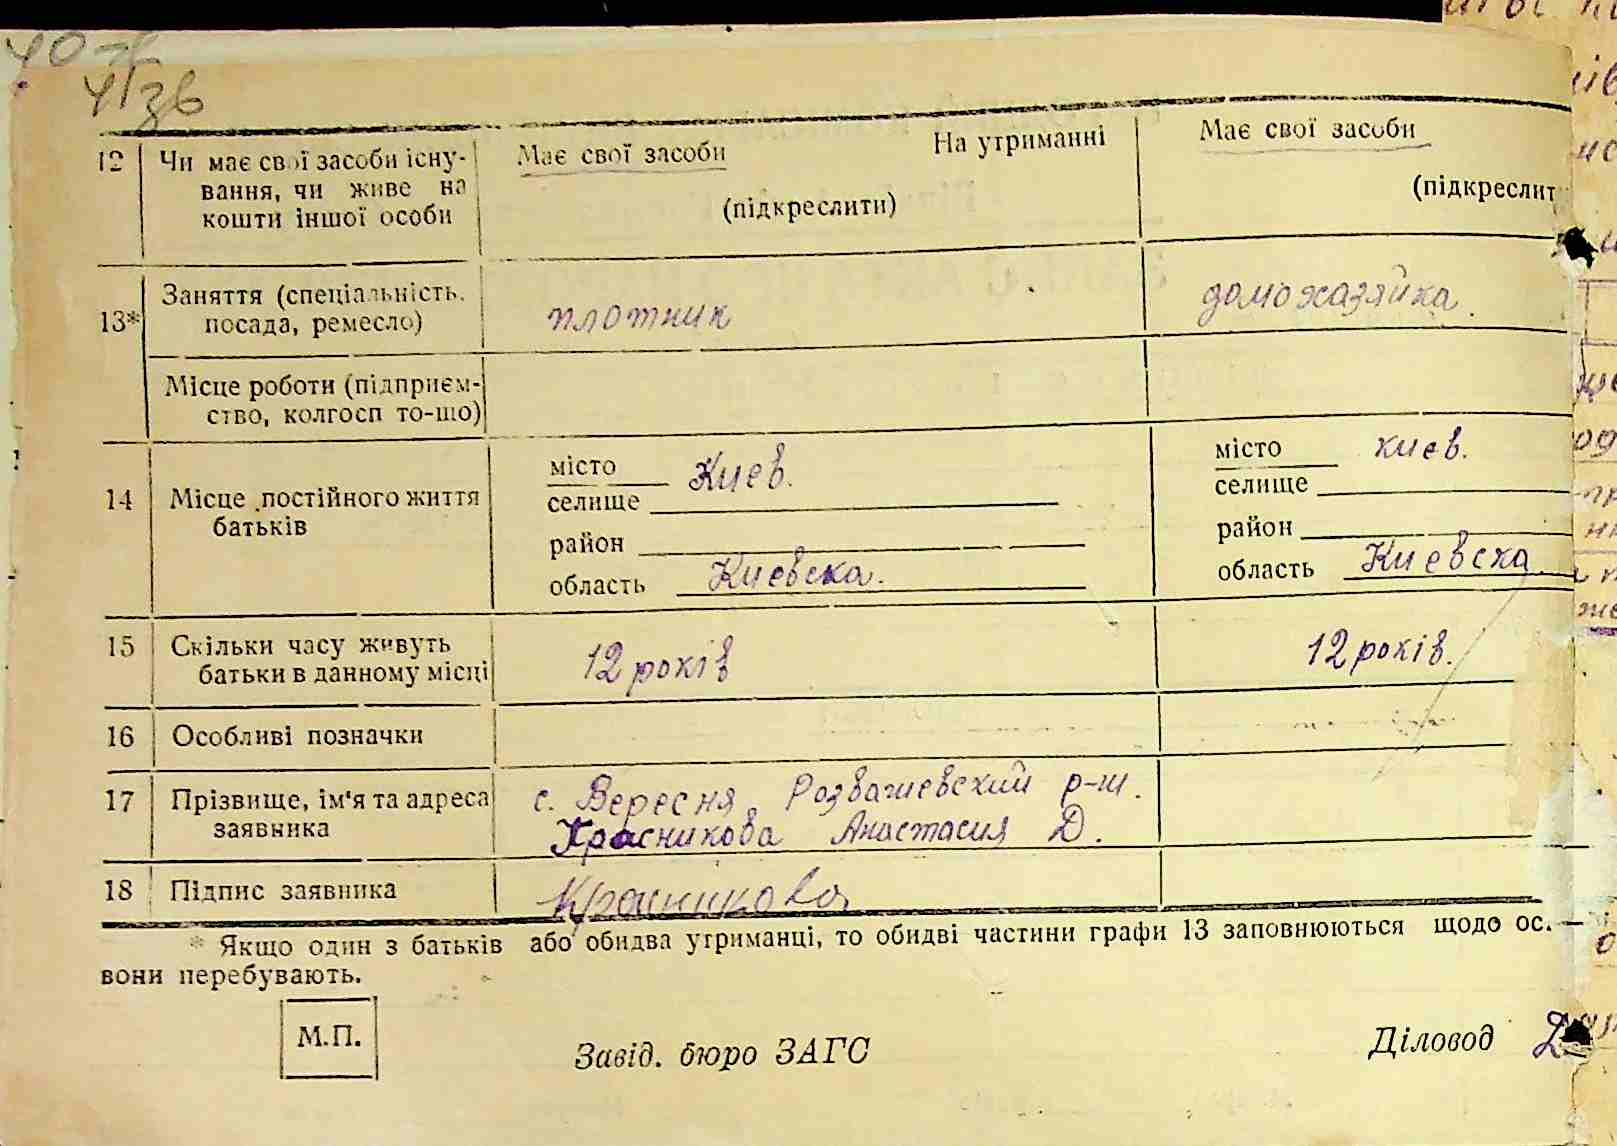 41 зв
12 Чи має свої засоби існу- Має свої засоби На утриманні Має свої засоби
вання, чи живе на
кошти іншої особи (підкреслити) (підкреслит
13* Заняття (спеціальність, посада, ремесло) плотник домохазяйка
Місце роботи (підприєм-
ство, колгосп то-що)
14 Місце постійного життя батьків
місто Киев. місто Киев.
селище селище
район район
область Киевска. область Киевска
15 Скільки часу живуть
батьки в данному місці 12 років 12 років.
16 Особливі позначки
17 Прізвище, ім'я та адреса с. Вересня Розважевский р-н.
заявника Красникова Анастасия Д.
18 Підпис заявника Красникова
* Якщо один з батьків або обидва утриманці, то обидві частини графи 13 заповнюються щодо ос.
вони перебувають.
М.П.
Завід. бюро ЗАГС Діловод